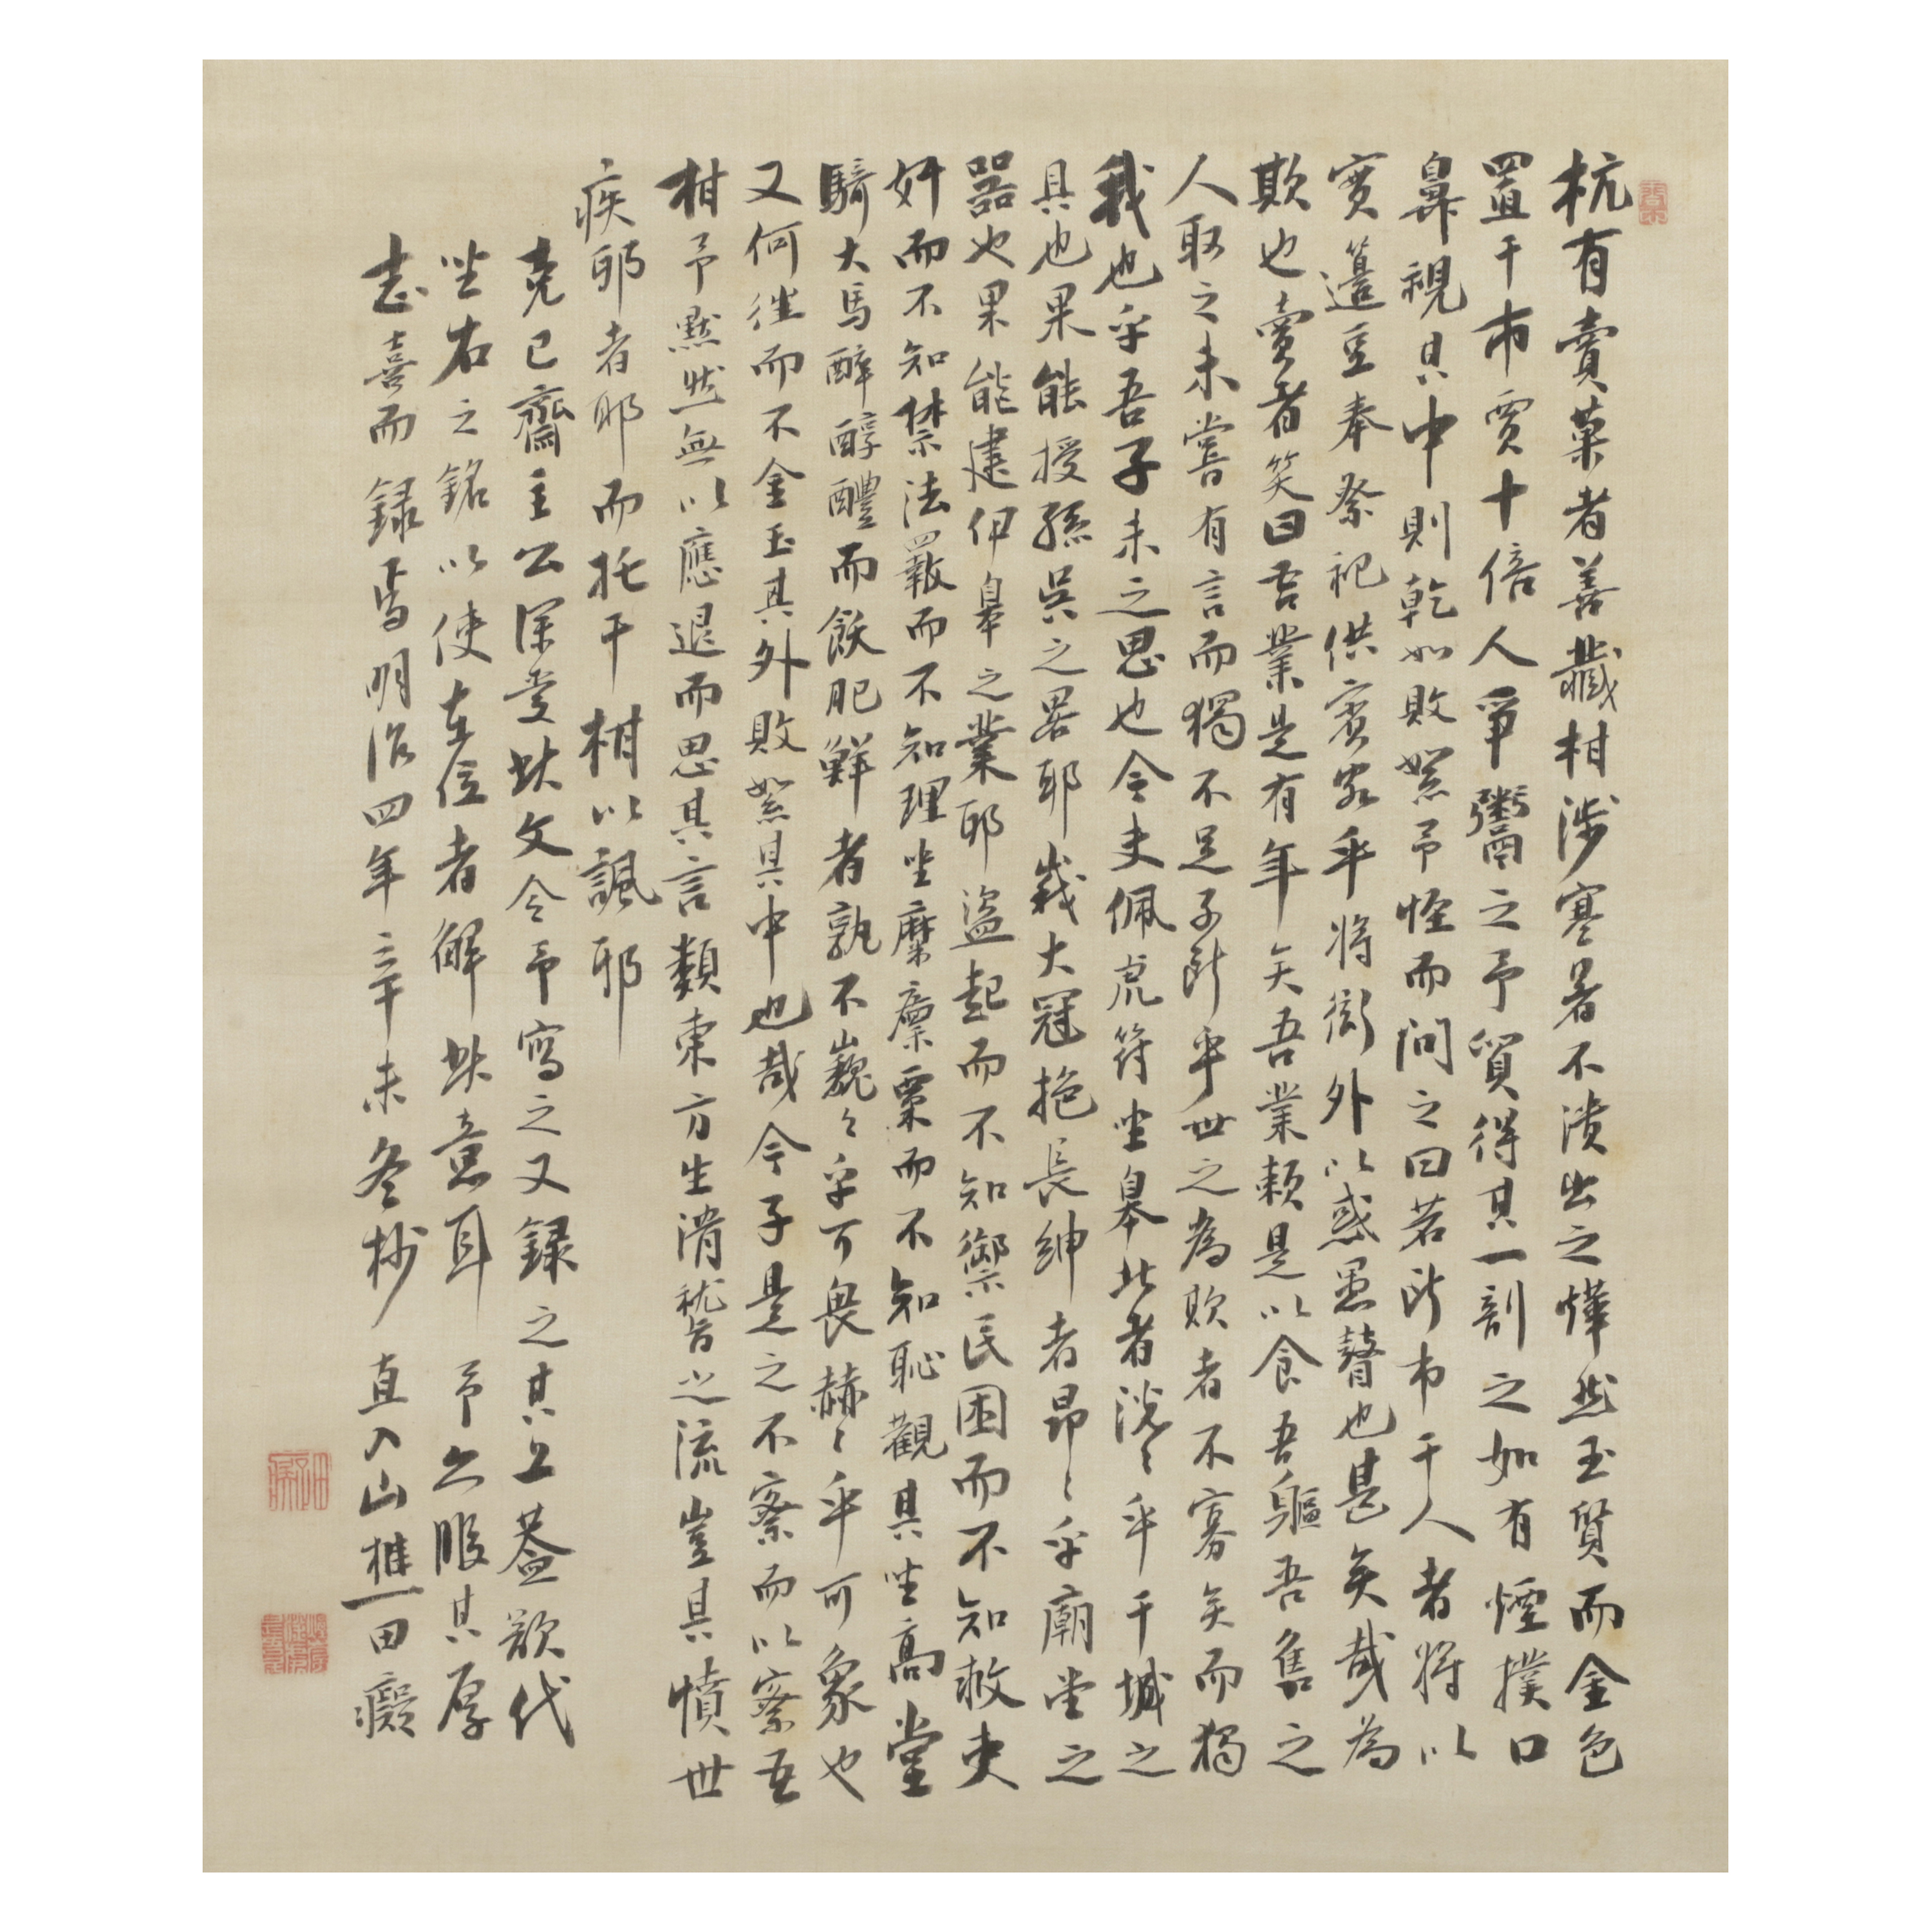 杭有賣菓者善藏柑涉寒暑不潰出之燁然玉質而金色
置于市賈十倍人爭鬻之予貿得其一剖之如有煙撲口
鼻視其中則乾如敗絮予怪而問之曰若所市于人者將以
實籩豆奉祭祀供賓客乎將衒外以惑愚瞽也甚矣哉為
欺也賣者笑曰吾業是有年矣吾業賴是以食吾軀吾售之
人取之未嘗有言而獨不足子所乎世之為欺者不寡矣而獨
我也乎吾子未之思也今夫佩虎符坐皋比者洸〻乎干城之
具也果能授孫吳之畧耶峩大冠拖長紳者昂〻乎廟堂之
器也果能建伊皋之業耶盜起而不知禦民困而不知救吏
奸而不知禁法斁而不知理坐糜廩粟而不知恥觀其坐高堂
騎大馬醉醇醴而飫肥鮮者孰不巍〻乎可畏赫〻乎可象也
又何往而不金玉其外敗絮其中也哉今子是之不察而以察吾
柑予默然無以應退而思其言類東方生滑稽之流豈其憤世
疾邪者耶而托于柑以諷耶
克已齋主公深愛此文令予寫之又錄之其上蓋欲代
坐右之銘以使在位者解此意耳 予亦服其厚
志喜而録焉明治四年辛未冬杪 直入山樵田癡